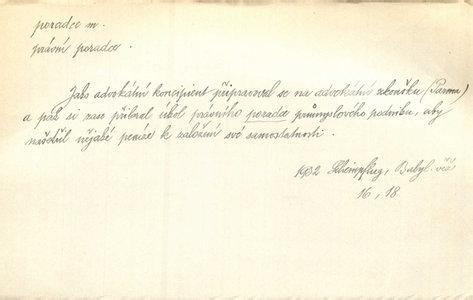 poradce m.
právní poradce.
Jako advokátní koncipient připravoval se na advokátní zkoušku (Parma)
a pak si zase přibral úkol právního poradce průmyslového podniku, aby
našetřil nějaké peníze k založení své samostatnosti.
1932 Scheinpflug, Babyl. věž
16, 18